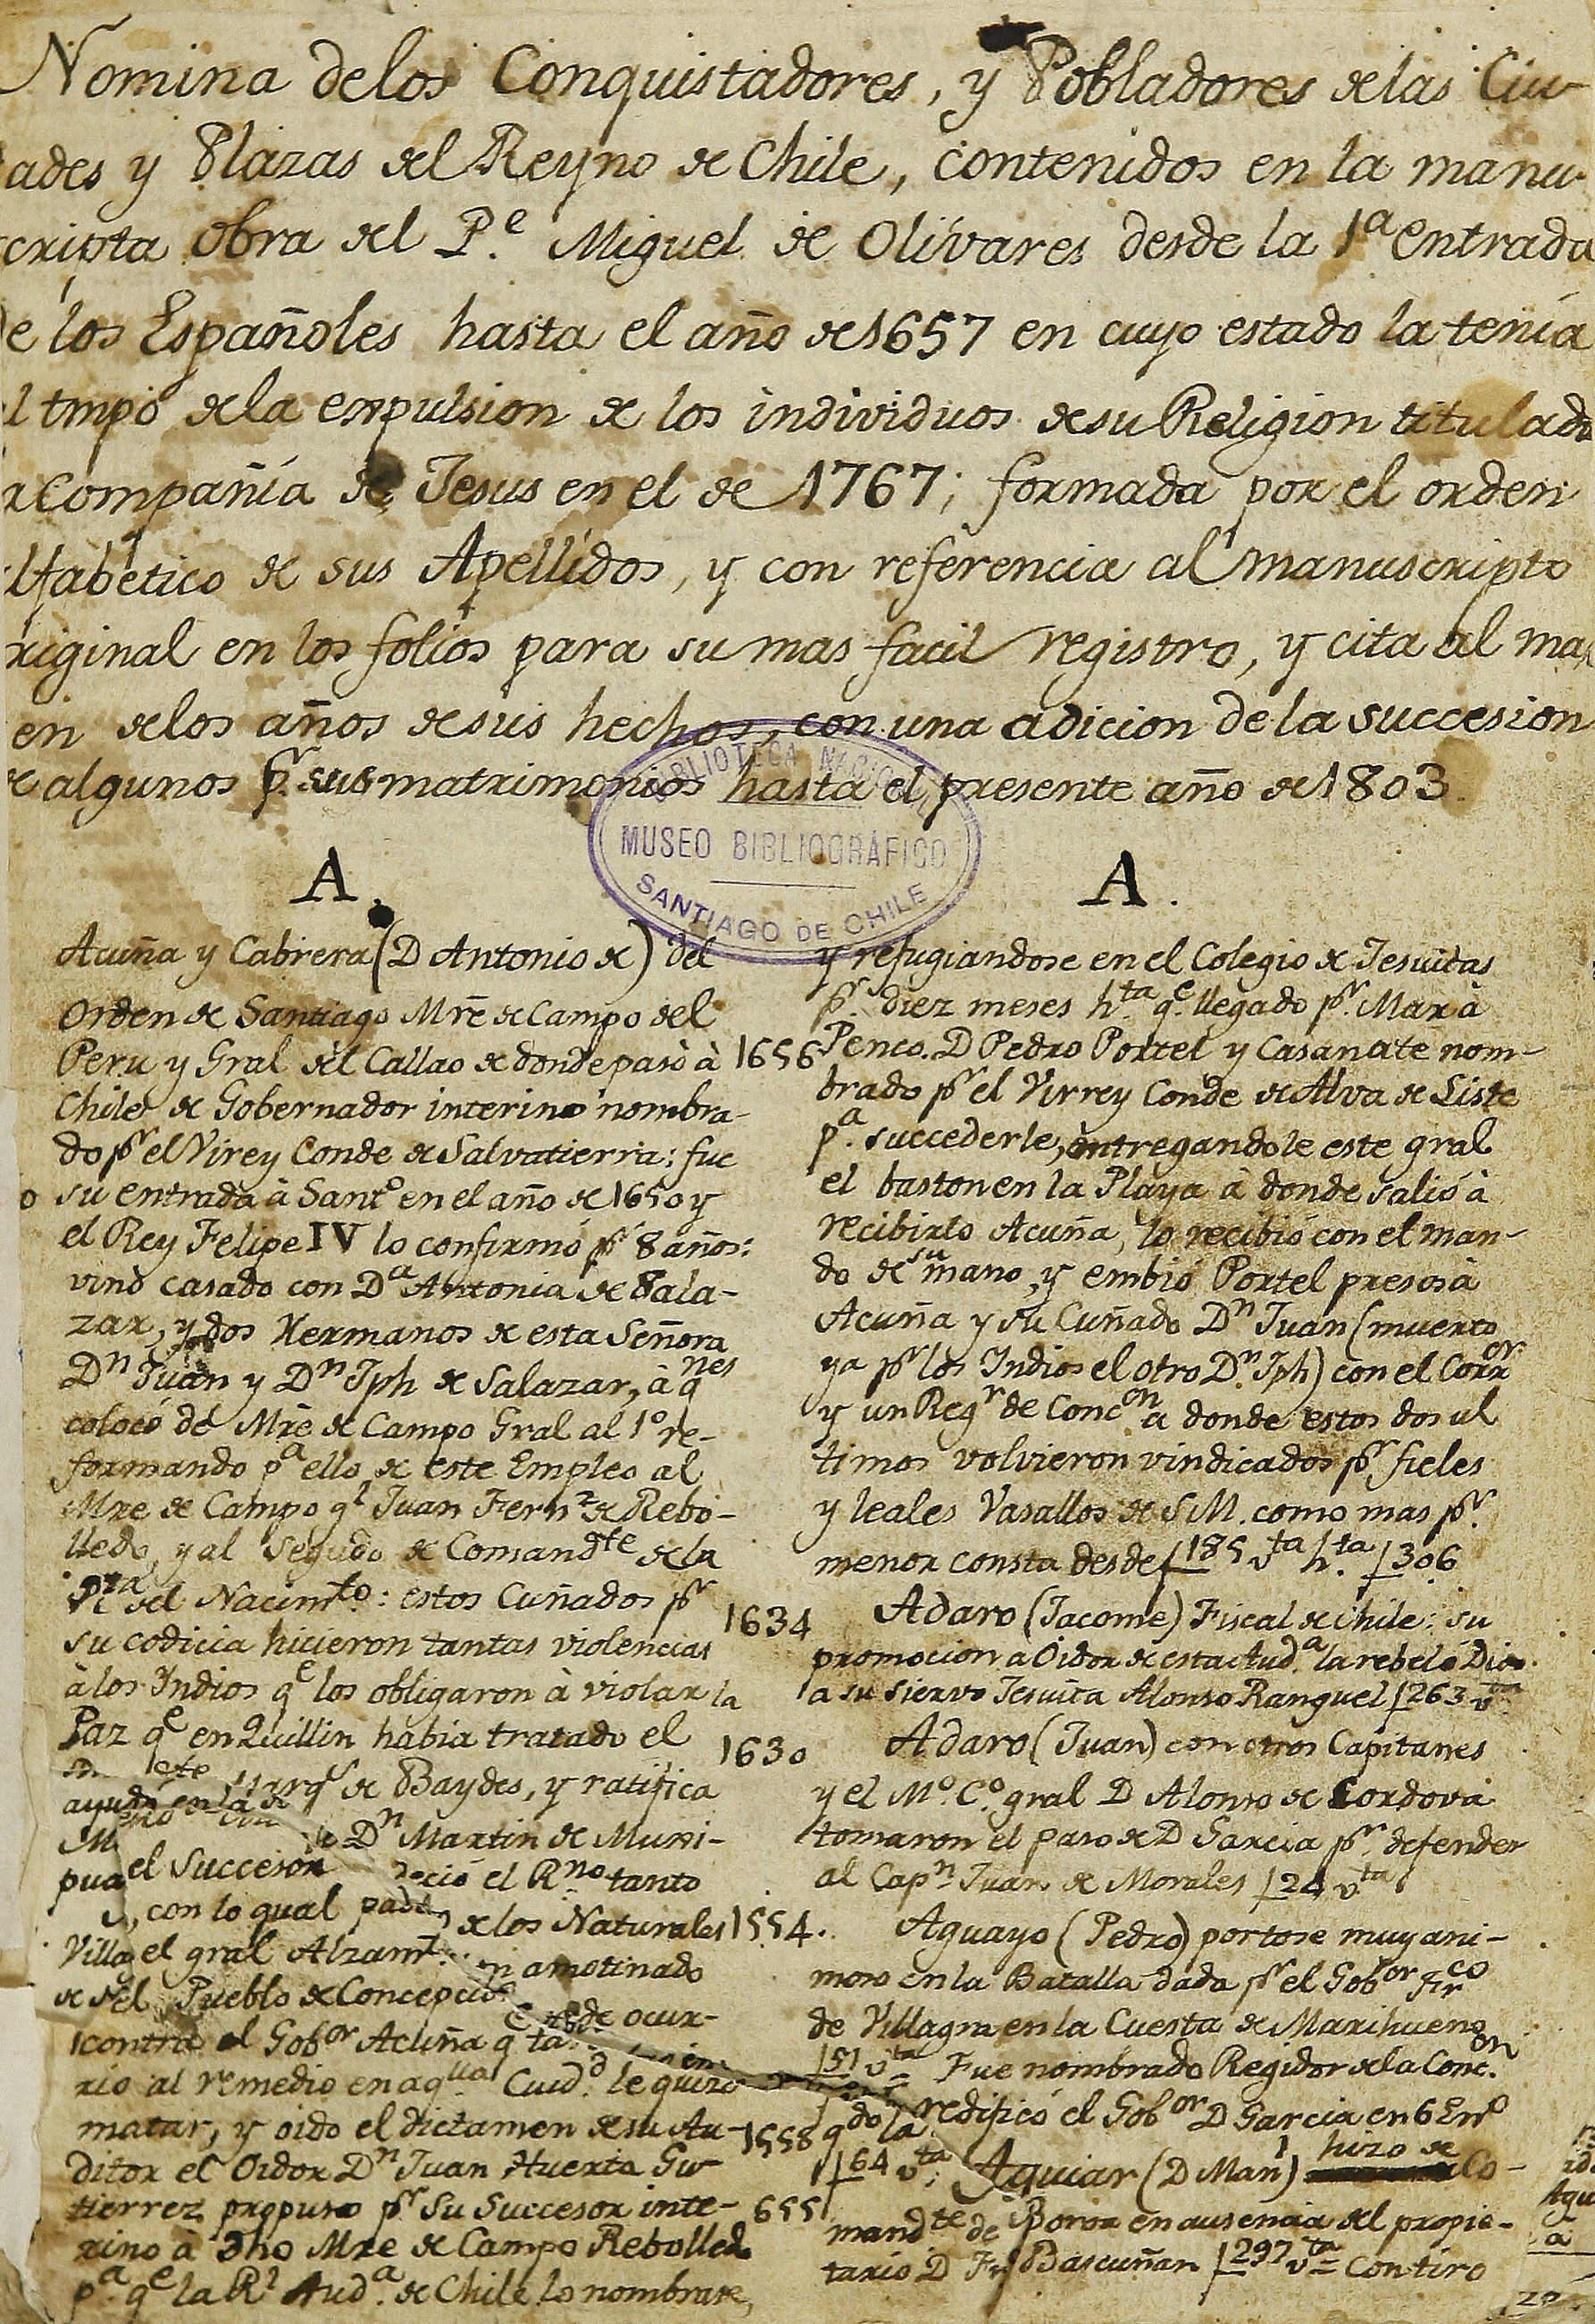 Nomina delos Conquistadores, y Pobladores de las Ciu-
ades y Plazas del Reyno de Chile, contenidos en la manu-
scripta obra del P.e Miguel de Olivares desde la 1a entrada
de los Españoles hasta el año de 1657 en cuyo estado la tenía
al tmpo de la expulsion de los individuos de su Religion titulada
la Compañía de Jesus en el de 1767; formada por el orden
alfabetico de sus Apellidos, y con referencia al manuscripto
original en los folios para su mas facil registro, y cita al mar
en de los años de sus hechos, con una adicion de la succesion
de algunos pr. sus matrimonios hasta el presente año de 1803.
BIBLIOTECA NACIONAL
MUSEO BIBLIOGRÁFICO
SANTIAGO DE CHILE
A.
Acuña y Cabrera (D Antonio de) del
Orden de Santiago Mrẽ de Campo del
Peru y Gral del Callao de donde pasò à
Chile de Gobernador interino nombra-
do pr el Virey Conde de Salvatierra: fue
o su entrada à Santo en el año de 1650 y
el Rey Felipe IV lo confirmó pr 8 años:
vinò casado con Da Antonia de Sala-
zar, y dos Hermanos de esta Señora
Dn Juan y Dn Jph de Salazar, à qnes
colocó de Mrẽ de Campo Gral al 1o re-
formando pa ello de este Empleo al
Mre de Campo gl Juan Fernz de Rebo-
lledo, y al Segudo de Comandte de la
Pza del Nacimto: estos Cuñados pr
su codicia hicieron tantas violencias
à los Yndios qe los obligaron à violar la
Paz qe en Quillin habia tratado el
Marqs de Baydes, y ratifica
ayudò en la de
Dn Martin de Muxi-
pua el Succesor deció el Rno tanto
, con lo qual pade de los Naturales
Villa el gral Alzamt: n amotinado
de del Pueblo de Concepcion de ocur-
contra el Gobor Acuña q
rio al remedio en aqlla Cuidd le quizo
matar, y oido el dictamen de su Au-
ditor el Oidor Dn Juan Huerta Gu-
tierrez propuso pr su Succesor inte-
rino à dho Mre de Campo Rebolledo
pa. qe la Rl Auda. de Chile lo nombrase,
A.
y refugiandose en el Colegio de Jesuitas
pr. diez meses hta. qe. llegado pr. Mar à
1656 Penco. D Pedro Portel y Casanate nom-
brado pr el Virrey Conde de Alva de Liste
pa. succederle, entregandole este gral
el baston en la Playa à donde salió à
recibirlo Acuña, lo recibió con el man-
do de su mano, y embió Portel presos à
Acuña y su Cuñado Dn Juan (muerto
ya pr los Indios el otro Dn. Jph) con el Corror
y un Regr de Concon a donde estos dos ul
timos volvieron vindicados pr fieles
y leales Vasallos de S M. como mas pr.
menor consta desde f 185 vta hta. f 306
1634 Adaro (Jacome) Fiscal de Chile: su
promocion a Oidor de esta Auda. la rebeló Dios
a su siervo Jesuita Alonso Ranguel f 263 vta
1630 Adaro (Juan) con otros Capitanes
y el Mo. Co. gral D Alonso de Cordova
tomaron el paso de D Garcia pr. defender
al Capn Juan de Morales f 24 vta
1554. Aguayo (Pedro) portose muy ani-
moso en la Batalla dada pr el Gobor Frco
de Villagra en la Cuesta de Marihueno
f 51 vta = Fue nombrado Regidor de la Concon.
1558 qdo la redificó el Gobor D Garcia en 6 Eno
f 64 vta: Aguiar (D Manl) hizo de Co-
655 mandte de Boroa en ausencia del propie-
tario D Fro Bascuñan f 297 vta = Contiro